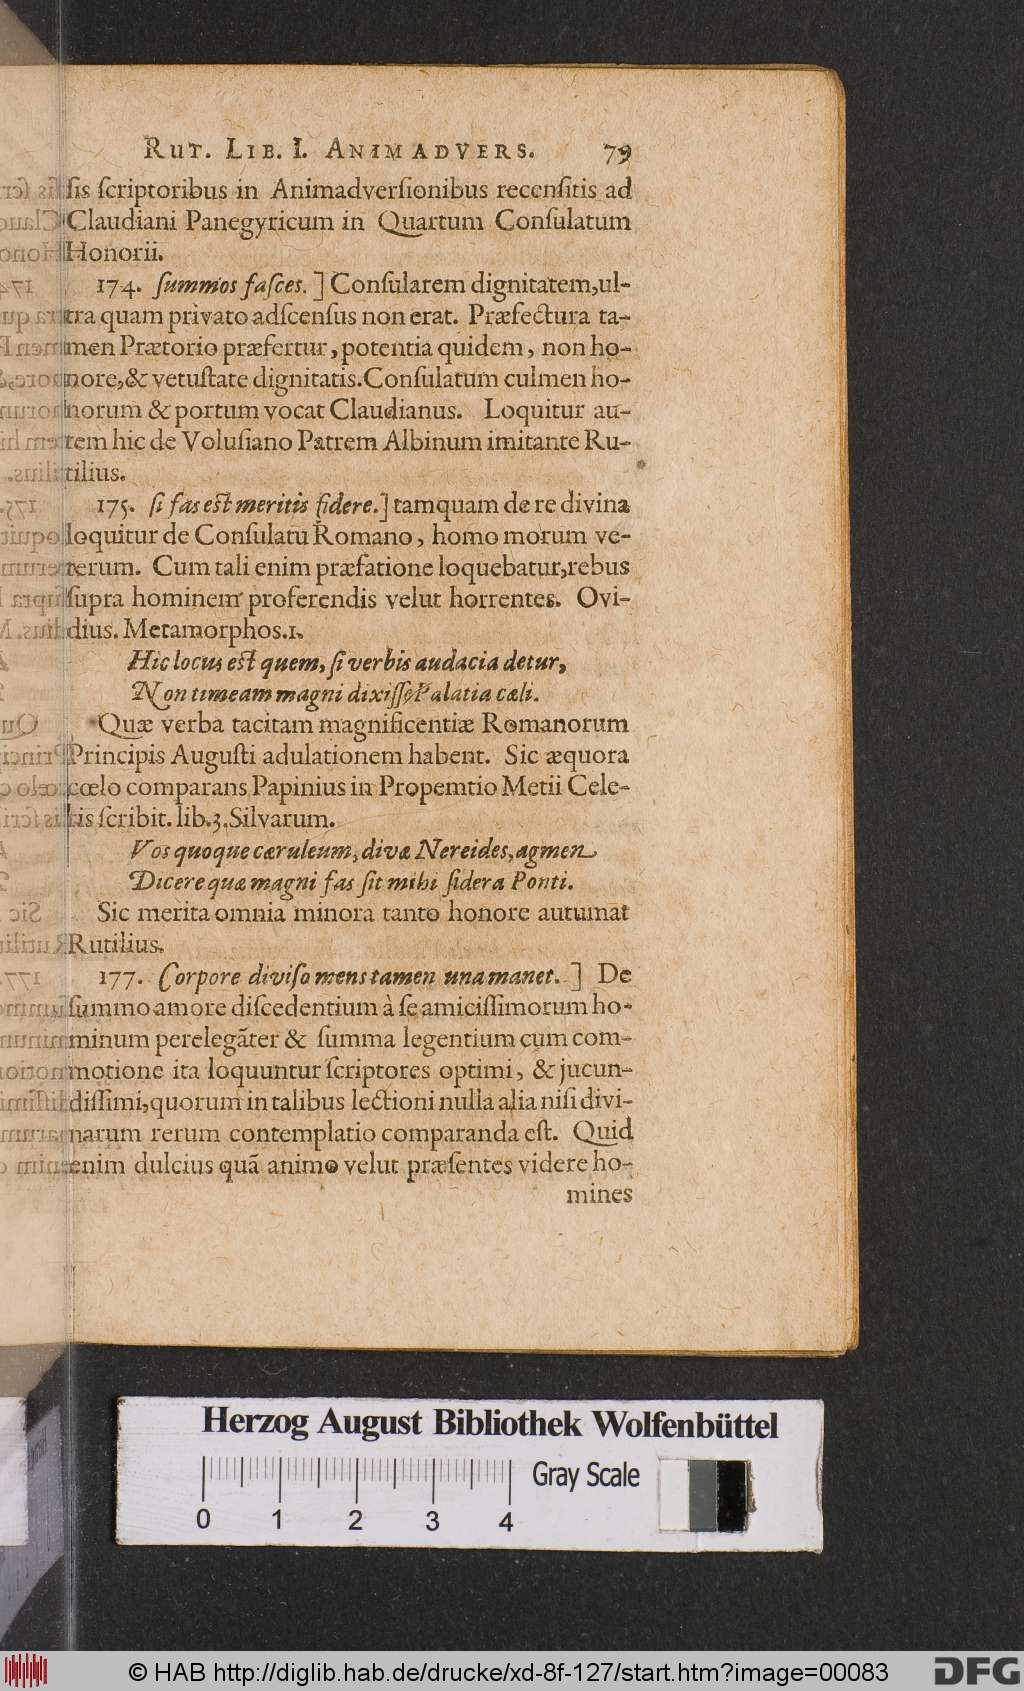 RUT. LIB. I. ANIMADVERS. 79
ſis ſcriptoribus in Animadverſionibus recenſitis ad
Claudiani Panegyricum in Quartum Conſulatum
Honorii.
174. ſummos faſces.] Conſularem dignitatem,ul-
tra quam privato adſcenſus non erat. Præfectura ta-
men Prætorio præfertur, potentia quidem, non ho-
nore,& vetuſtate dignitatis. Conſulatum culmen ho-
norum & portum vocat Claudianus. Loquitur au-
tem hic de Voluſiano Patrem Albinum imitante Ru-
tilius.
175. ſi fas eſt meritis fidere.] tamquam de re divina
loquitur de Conſulatu Romano, homo morum ve-
terum. Cum tali enim præfatione loquebatur,rebus
ſupra hominem proferendis velut horrentes. Ovi-
dius. Metamorphos.1.
Hic locus eſt quem, ſi verbis audacia detur,
Non timeam magni dixiſſe Palatia cæli.
Quæ verba tacitam magnificentiæ Romanorum
Principis Auguſti adulationem habent. Sic æquora
cœlo comparans Papinius in Propemtio Metii Cele-
ris ſcribit. lib.3.Silvarum.
Vos quoque cæruleum, divæ Nereides, agmen
Dicere quæ magni fas ſit mihi ſidera Ponti.
Sic merita omnia minora tanto honore autumat
Rutilius.
177. Corpore diviſo mens tamen una manet.] De
ſummo amore diſcedentium à ſe amiciſſimorum ho-
minum perelegãter & ſumma legentium cum com-
motione ita loquuntur ſcriptores optimi, & jucun-
diſſimi,quorum in talibus lectioni nulla alia niſi divi-
narum rerum contemplatio comparanda eſt. Quid
enim dulcius quã animo velut præſentes videre ho-
mines
Herzog August Bibliothek Wolfenbüttel
Gray Scale
0 1 2 3 4
© HAB http://diglib.hab.de/drucke/xd-8f-127/start.htm?image=00083
DFG